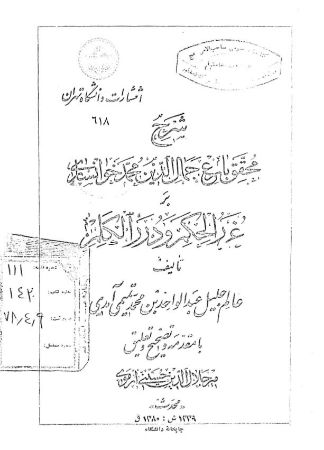 انتشارات دانشگاه تهران
۶۱۸
شرح
محقق بارع جمال الدین محمد خوانساری
بر
غرر الحکم و درر الکلم
تألیف
عالم جلیل عبدالواحد بن محمد تمیمی آمدی
با مقدمه و تصحیح و تعلیق
میر جلال الدین حسینی ارموی «محدث»
۱۳۳۹ ش : ۱۳۸۰ ق
چاپخانه دانشگاه
۱۱۱
۱۴۲
۷۸/۴/۹